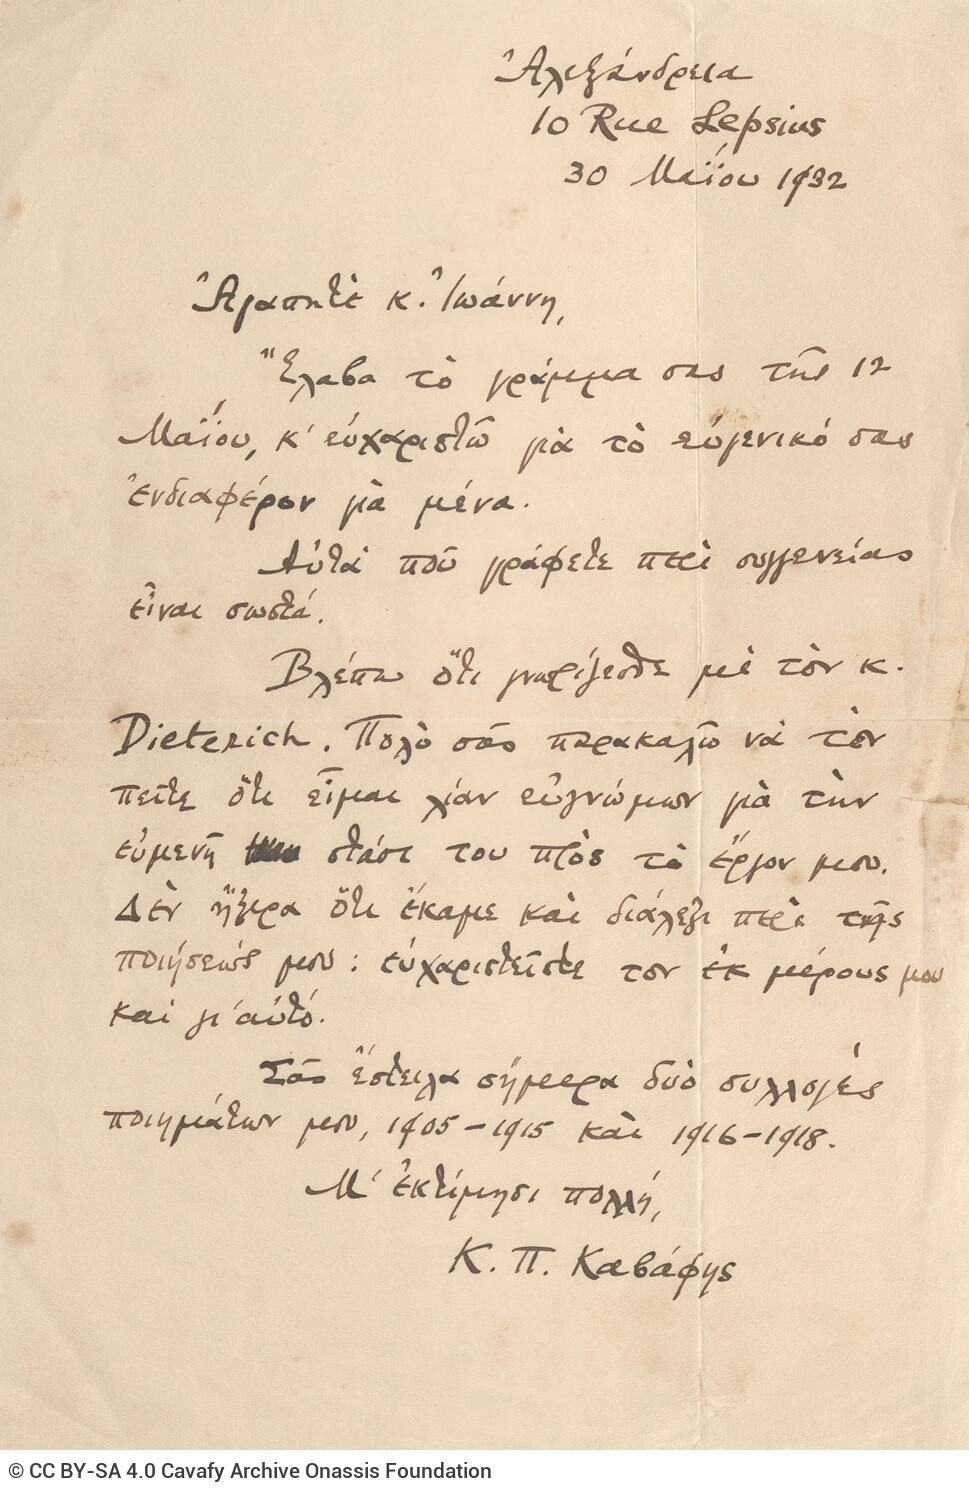 Ἀλεξάνδρεια
10 Rue Lepsius
30 Μαΐου 1932
Ἀγαπητὲ κ. Ἰωάννη,
Ἔλαβα τὸ γράμμα σας τῆς 12
Μαΐου, κ' εὐχαριστῶ γιὰ τὸ εὐγενικό σας
ἐνδιαφέρον γιὰ μένα.
Αὐτὰ ποῦ γράφετε περὶ συγγενείας
εἶναι σωστά.
Βλέπω ὅτι γνωρίζεσθε μὲ τὸν κ.
Dieterich. Πολὺ σᾶς παρακαλῶ νὰ τὸν
πεῖτε ὅτι εἶμαι λίαν εὐγνώμων γιὰ τὴν
εὐμενῆ στάσι του πρὸς τὸ ἔργον μου.
Δὲν ἤξερα ὅτι ἔκαμε καὶ διάλεξι περὶ τῆς
ποιήσεώς μου: εὐχαριστεῖστε τον ἐκ μέρους μου
καὶ γι' αὐτό.
Σᾶς ἔστειλα σήμερα δυὸ συλλογὲς
ποιημάτων μου, 1905-1915 καὶ 1916-1918.
Μ' ἐκτίμησι πολλή,
Κ. Π. Καβάφης
© CC BY-SA 4.0 Cavafy Archive Onassis Foundation